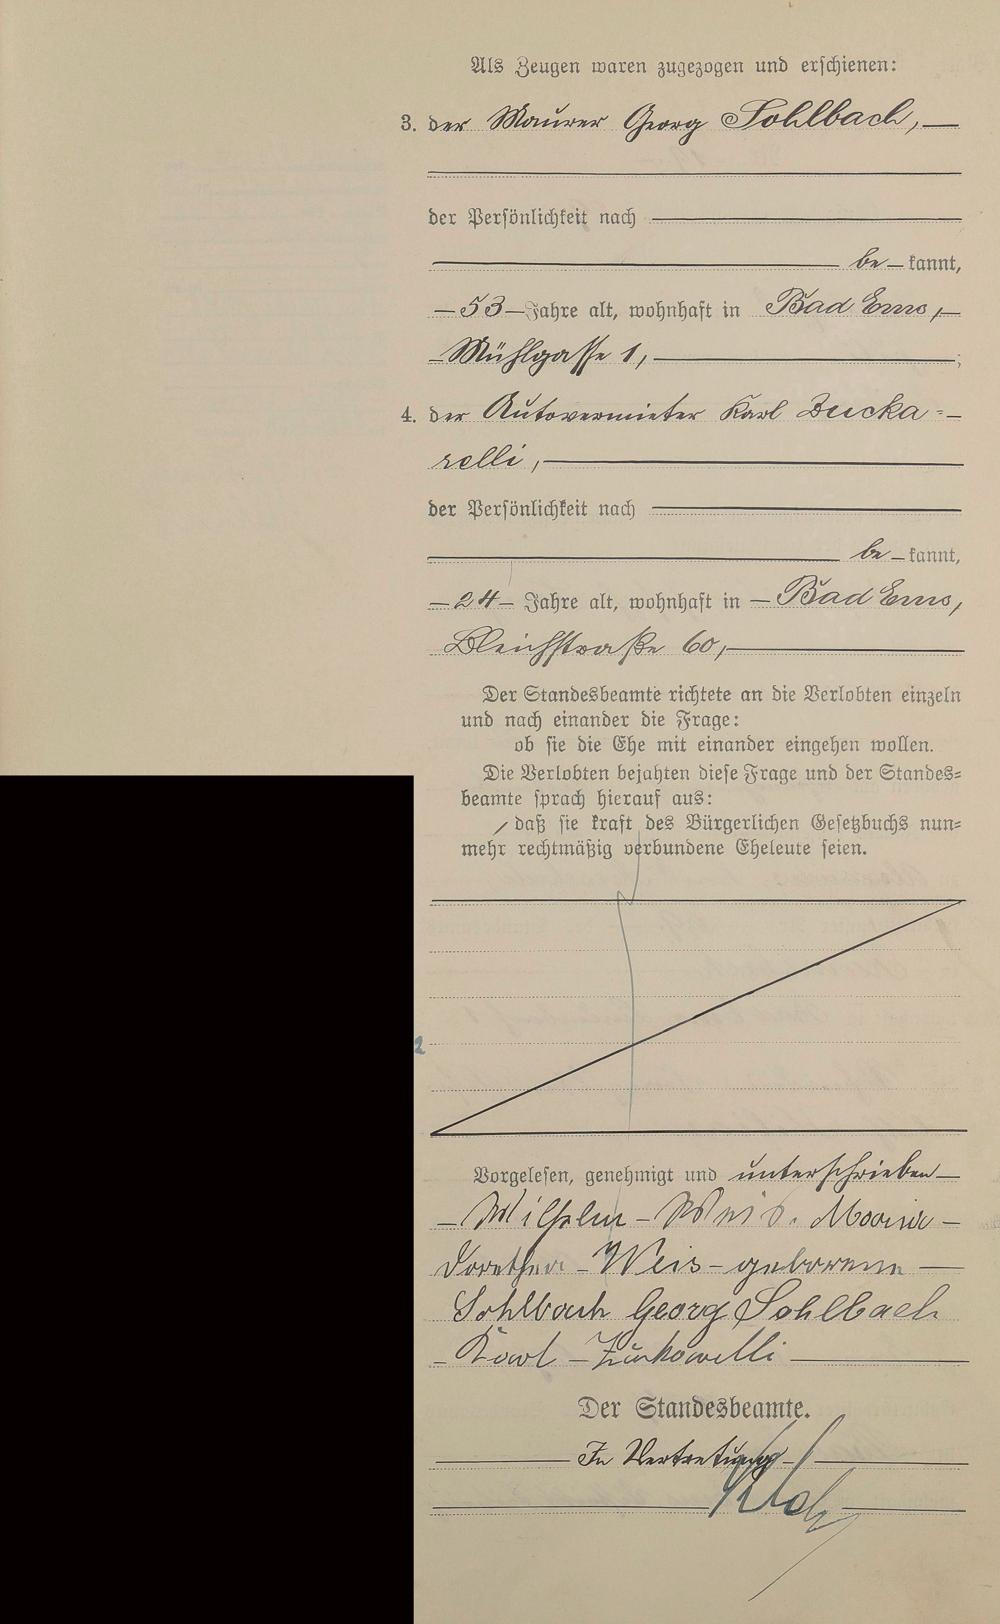 Als Zeugen waren zugezogen und erschienen:
3. der Maurer Georg Sohlbach,
der Persönlichkeit nach
be kannt,
53 Jahre alt, wohnhaft in Bad Ems,
Mühlgasse 1, ;
4. der Autovermieter Karl Zucka=
relli,
der Persönlichkeit nach
be kannt,
24 Jahre alt, wohnhaft in Bad Ems,
Bleichstraße 60,
Der Standesbeamte richtete an die Verlobten einzeln
und nach einander die Frage:
ob sie die Ehe mit einander eingehen wollen.
Die Verlobten bejahten diese Frage und der Standes=
beamte sprach hierauf aus:
daß sie kraft des Bürgerlichen Gesetzbuchs nun=
mehr rechtmäßig verbundene Eheleute seien.
2
Vorgelesen, genehmigt und unterschrieben
Wilhelm Weis. Maria
Dorothea Weis geborene
Sohlbach Georg Sohlbach
Karl Zuckarelli
Der Standesbeamte.
In Vertretung